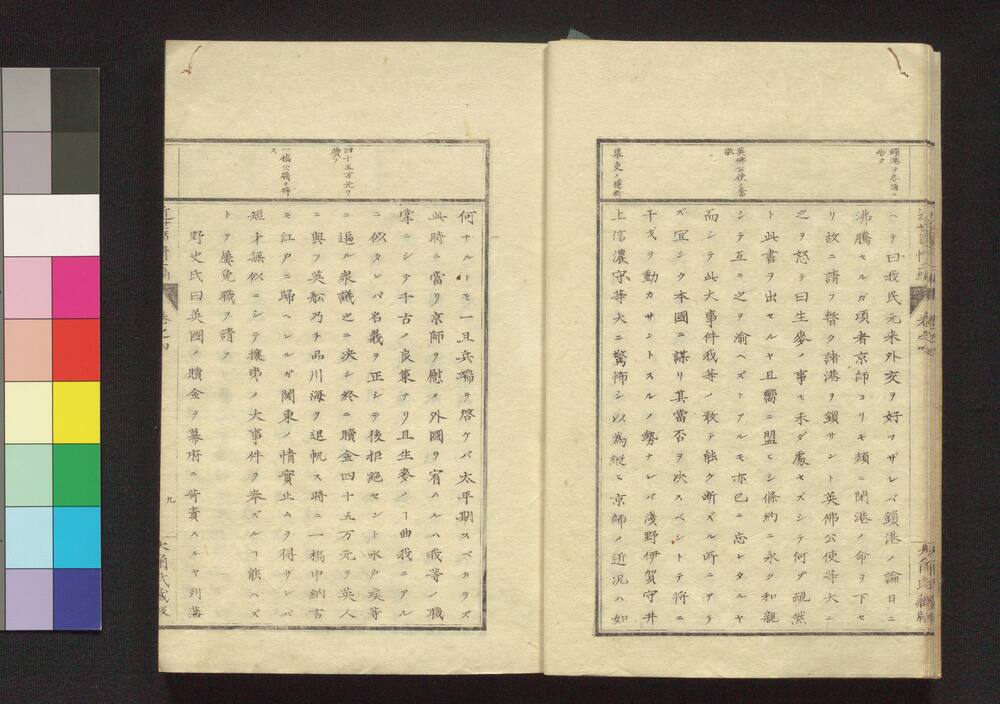 鎖港ヲ各國ニ
告ク
英佛公使ノ奮
激
幕吏ノ驚怖
ヘテ曰我氏元来外交ヲ好マザレバ鎖港ノ論日ニ
沸騰セルガ項者京師ヨリモ頻ニ閉港ノ命ヲ下セ
リ故ニ請フ暫ク諸港ヲ鎖サント英佛公使等大ニ
之ヲ怒テ曰生麥ノ事モ未ダ處セズシテ何ゾ靦然
ト此書ヲ出セルヤ且嚮ニ盟ヒシ條約ニ永ク和親
シテ互ニ之ヲ渝ヘズトアルモ亦已ニ忘レタルヤ
而シテ此大事件我等ノ敢テ能ク断ズル所ニアラ
ズ宜シク本國ニ謀リ其當否ヲ决スベシトテ将ニ
干戈ヲ動カサントスルノ勢ナレバ淺野伊賀守井
上信濃守等大ニ驚怖シ以為縦ヒ京師ノ近況ハ如
四十五万元ヲ
贖フ
一橋公職ヲ辞
ス
何ナルトモ一旦兵端ヲ啓ケバ太平期スベカラズ
此時ニ當リ京師ヲ慰メ外國ヲ宥ムルハ我等ノ職
掌ニシテ千古ノ良策ナリ且生麥ノヿ曲我ニアル
ニ似タレバ名義ヲ正シテ後拒絶セント水戸矦等
ニ逼ル衆議之ニ决シ終ニ贖金四十五万元ヲ英人
ニ與フ英舩乃チ品川海ヲ退帆ス将ニ一橋中納言
モ江戸ニ歸ヘレルガ関東ノ情實止ムヲ得ザレバ
短才無似ニシテ攘夷ノ大事件ヲ奉ズルヿ能ハズ
トテ屡免職ヲ請フ
野史氏曰英國ノ贖金ヲ幕府ニ苛責スルヤ列藩
卷之四
九